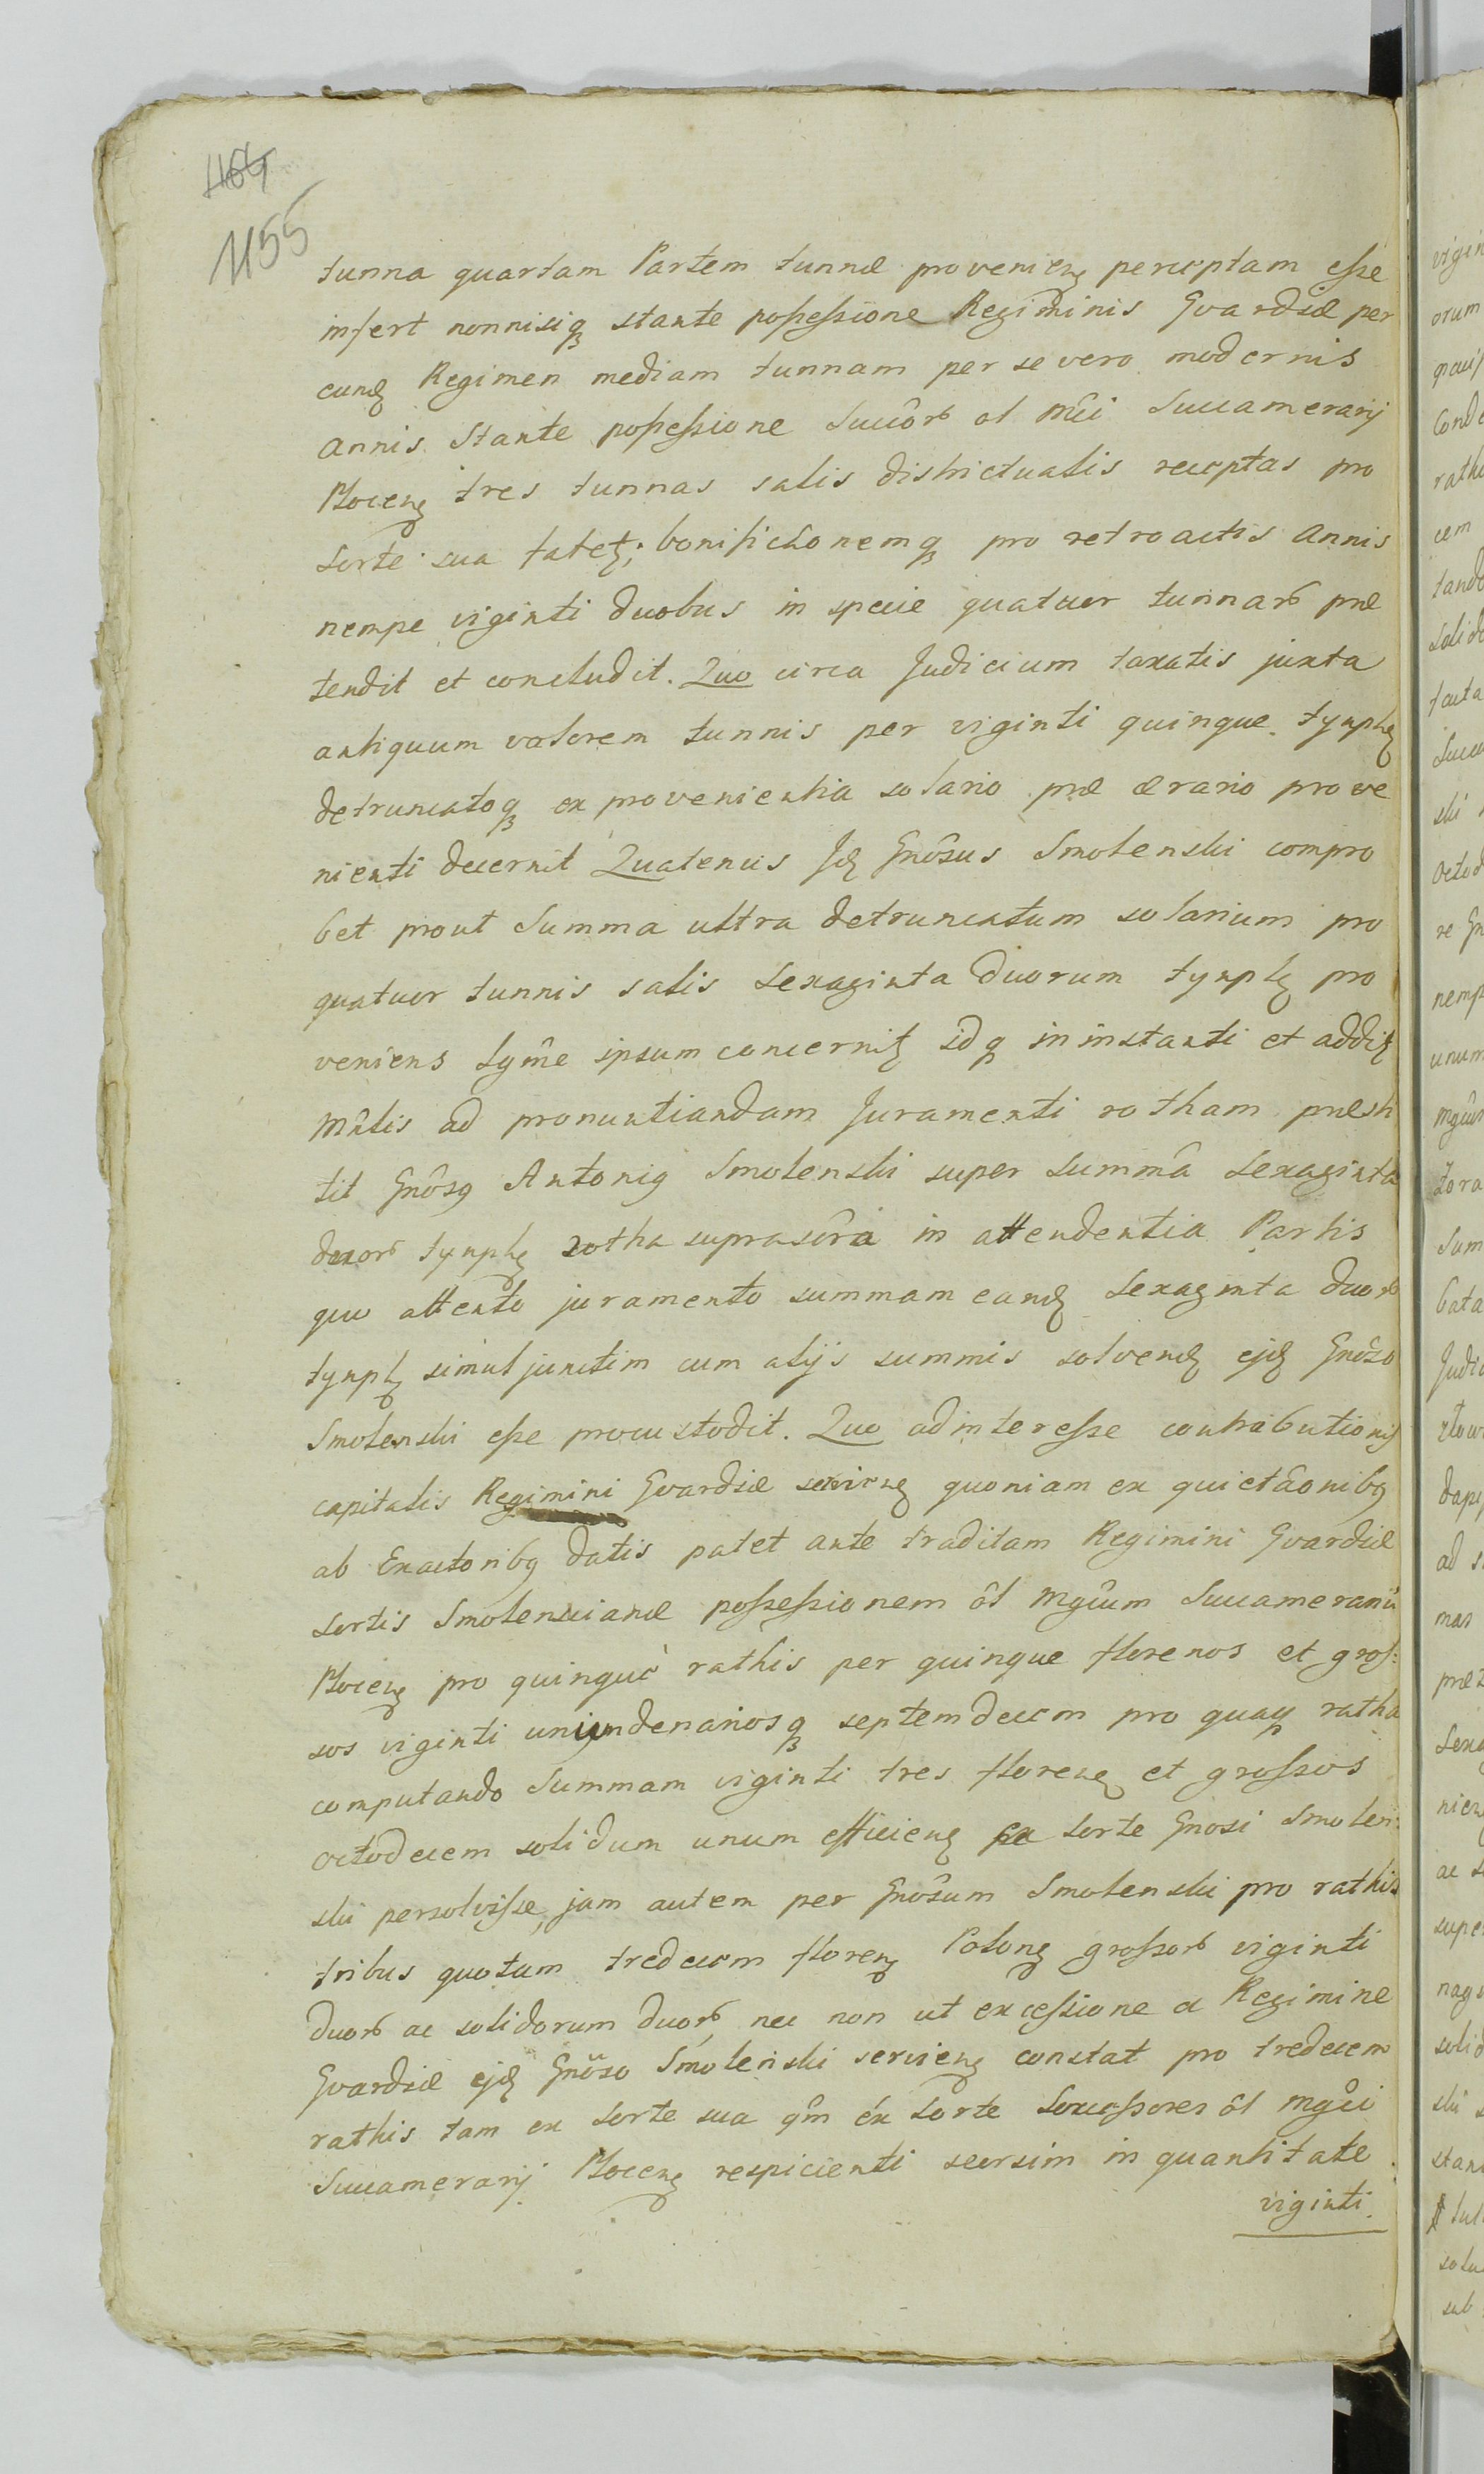 464
1155
tunna quartam Partem tunnæ provenienꝫ perceptam eſse
infert nonnisiqꝫ stante poſseſsione Regiminis Gvardiæ per
eundꝫ Regimen mediam tunnam per se vero modernis
annis stante poſseſsione Succôrꝝ ol Mĉi Succamerarij
Plocenꝫ tres tunnas salis districtualis receptas pro
sorte sua fatetꝫ; bonifictionemqꝫ pro retroactis annis
nempe viginti duobus in specie quatuor tunnarꝝ præ
tendit et concludit. Quo circa Judicium taxatis juxta
antiquum valorem tunnis per viginti quinque tynphꝫ
detruncatoqꝫ ex provenientia solario præ ærario prove
nienti decernit Quatenus Jdꝫ Gnôsus Smolenski compro
bet prout Summa ultra detruncatum solarium pro
quatuor tunnis salis Sexaginta Duorum tynphꝫ pro
veniens Lgm̂e ipsum concernitꝫ idqꝫ in instanti et addiꝫ
Mn̂lis ad pronuntiandam Juramenti rotham præsti
tit Gnôsꝯ Antoniꝯ Smolenski super Summâ Sexaginta
duorꝝ tynphꝫ rotha suprascr̂ a in attendentia Partis
quo attento juramento summam eandꝫ Sexaginta duorꝝ
tynphꝫ simul junctim cum alijs summis solvendꝫ ejdꝫ Gnôso
Smolenski eſse procustodit. Quo ad intereſse contributionis
capitalis Regimini Gvardiæ servienꝫ quoniam ex quietâonibꝯ
ab Exactoribꝯ datis patet ante traditam Regimini Gvardiæ
sortis Smolensciana poſseſsionem ôl Mgĉum Succamerariũ
Plocenꝫ pro quinque rathis per quinque florenos et groſ:
sos viginti unum denariosqꝫ septemdecem pro quavꝫ ratha
computando Summam viginti tres florenꝫ et groſsos
octodecem solidum unum efficienꝫ ex sorte Gnosi Smolen:
ski persolviſse, jam autem per Gnôsum Smolenski pro rathis
tribus quotam tredecem florenꝫ Polonꝫ groſsorꝝ viginti
duorꝝ ac solidorum duorꝝ, nec non ut ex ceſsione a Regimine
Gvardiæ ejdꝫ Gnôso Smolenski servienꝫ constat pro tredecem
rathis tam ex sorte sua qm̂ ex sorte Succeſsores ôl Mgĉi
Succamerarij Plocenꝫ respicienti seorsim in quantitate
viginti